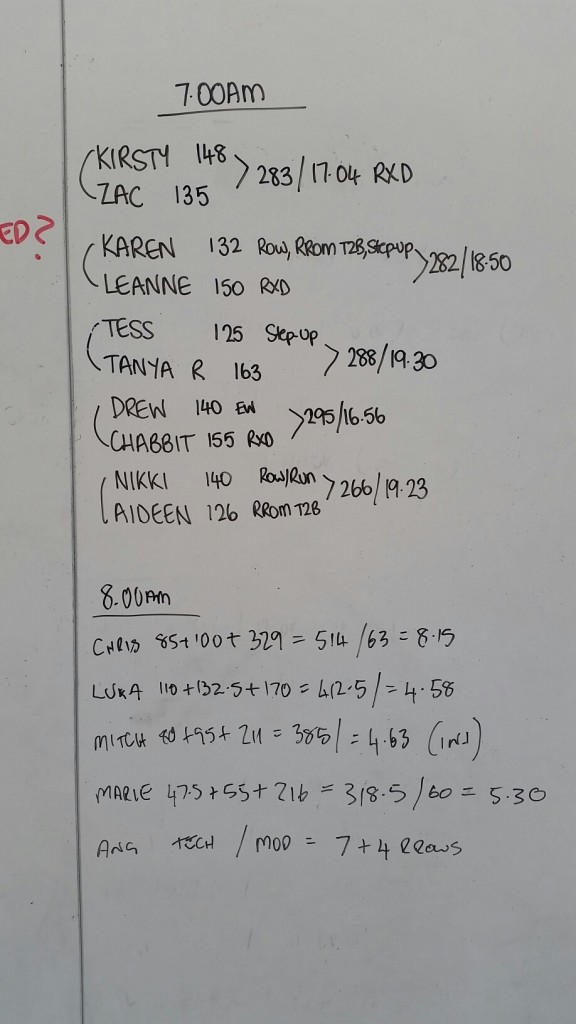 7.00AM
KIRSTY 148
ZAC 135
283/17.04 RXD
ED?
KAREN 132 ROW, RROM T2B, Step-up
LEANNE 150 RXD
282/18.50
TESS 125 Step-up
TANYA R 163
288/19.30
DREW 140 EW
CHABBIT 155 RXD
295/16.56
NIKKI 140 Row/Run
AIDEEN 126 RROM T2B
266/19.23
8.00AM
CHRIS 85+100+329 = 514 /63 = 8.15
LUKA 110+132.5+170 = 412.5/= 4.58
MITCH 80+95+211 = 385/ = 4.63 (INJ)
MARIE 47.5+55+216 = 318.5/60 = 5.30
ANG TECH / MOD = 7+4 RROWS